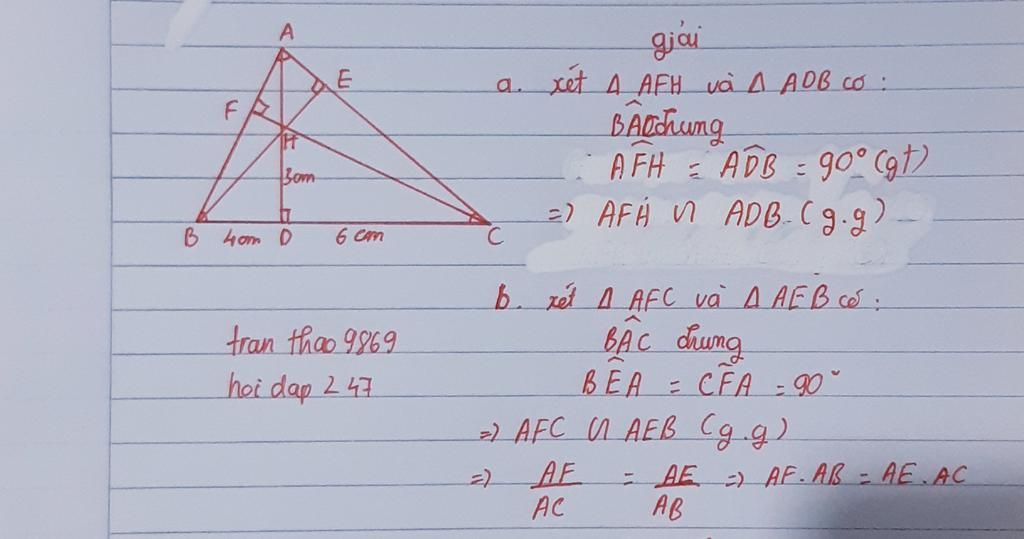 A
E
F
H
3cm
B 4cm D 6 cm C
giải
a. xét Δ AFH và Δ ADB có :
BÂC chung
AF̂H = AD̂B = 90° (gt)
=> AFH ᔕ ADB (g.g)
b. xét Δ AFC và Δ AEB có :
BÂC chung
BÊA = CF̂A = 90°
=> AFC ᔕ AEB (g.g)
=> AF/AC = AE/AB => AF.AB = AE.AC
tran thao 9869
hoi dap 247